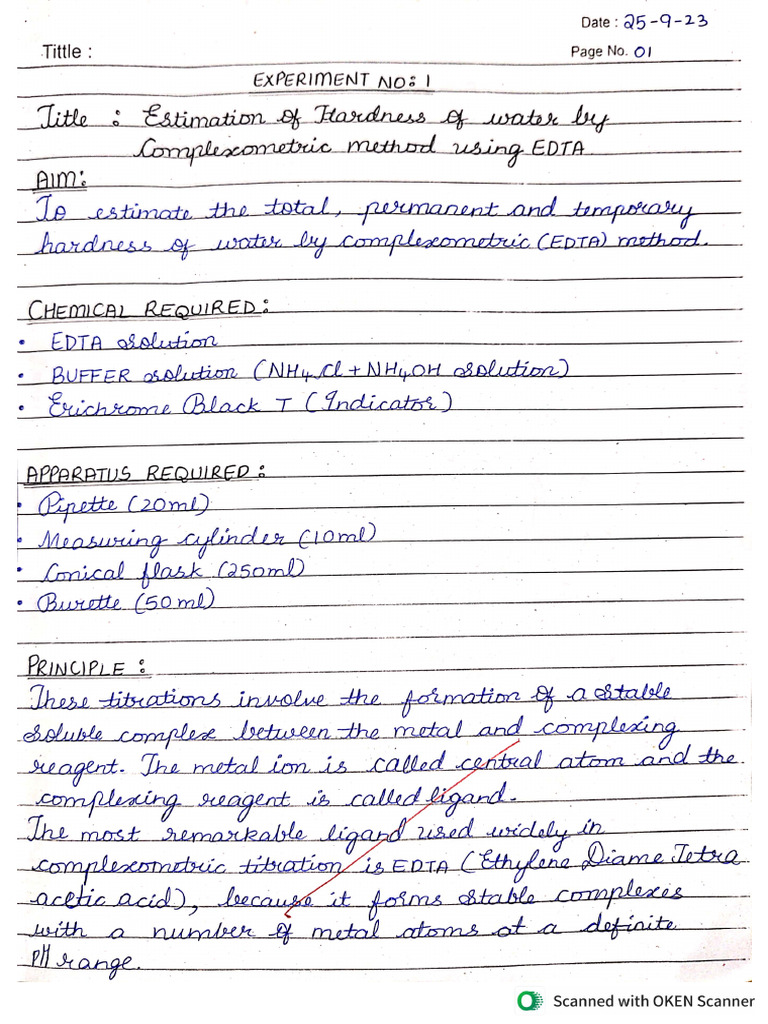 Date : 25-9-23
Tittle :
Page No. 01
EXPERIMENT NO: 1
Title : Estimation of Hardness of water by
Complexometric method using EDTA
AIM:
To estimate the total, permanent and temporary
hardness of water by complexometric (EDTA) method.
CHEMICAL REQUIRED:
• EDTA solution
• BUFFER solution (NH4Cl + NH4OH solution)
• Erichrome Black T (Indicator)
APPARATUS REQUIRED:
• Pipette (20ml)
• Measuring cylinder (10ml)
• Conical flask (250ml)
• Burette (50ml)
PRINCIPLE:
These titrations involve the formation of a stable
soluble complex between the metal and complexing
reagent. The metal ion is called central atom and the
complexing reagent is called ligand.
The most remarkable ligand used widely in
complexometric titration is EDTA (Ethylene Diame Tetra
acetic acid), because it forms stable complexes
with a number of metal atoms at a definite
pH range.
Scanned with OKEN Scanner